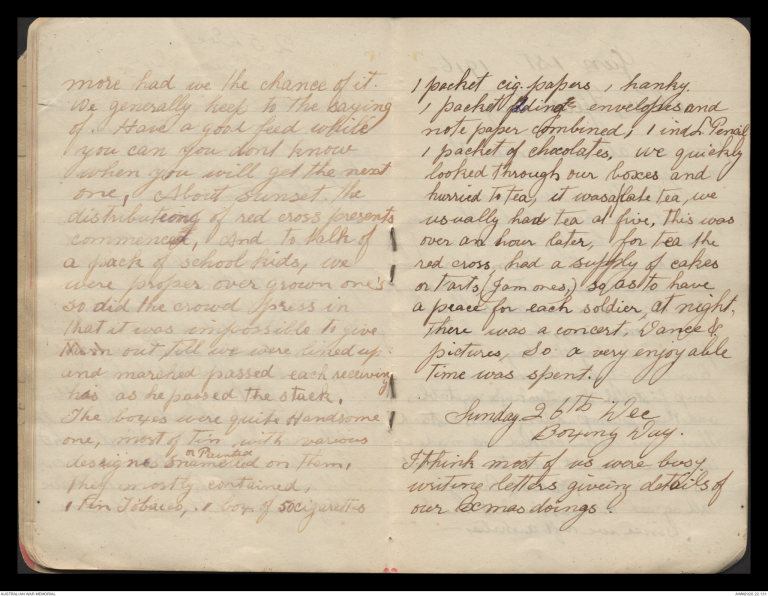 more had we the chance of it.
We generally keep to the saying
of. Have a good feed while
you can you dont know
when you will get the next
one, About sunset. the
distributiong of red cross presents
commenced, And to talk of
a pack of school kids, we
were proper over grown one's
so did the crowd press in
that it was impossible to give
them out till we were lined up
and marched passed each receiving
his as he passed the stack.
The boxes were quite Handsome
one, most of Tin with various
designs or Painted Enameled on them,
they mostly contained,
1 tin Tobacco, 1 box of 50 cigarettes
1 packet cig. papers, 1 hanky.
1 packet envelopes and
note paper combined, 1 ind. Pencil
1 packet of chocolates, we quickly
looked through our boxes and
hurried to tea, it was a late tea, we
usually had tea at five, this was
over an hour later, for tea the
red cross, had a supply of cakes
or tarts, (Jam ones,) so as to have
a peace for each soldier, at night,
there was a concert, Dance &
pictures, So a very enjoyable
time was spent.
Sunday 26th Dec
Boxing Day.
I think most of us were busy
writing letters giveing details of
our Xmas doings.
AUSTRALIAN WAR MEMORIAL